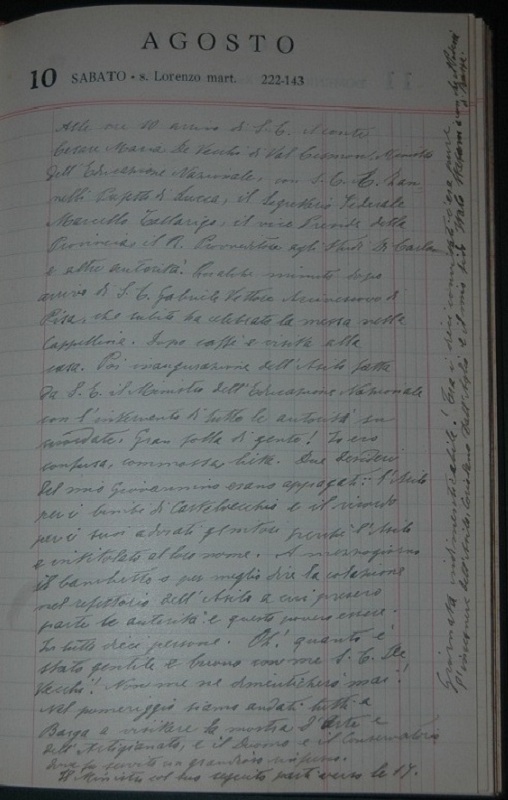 AGOSTO
10 SABATO - s. Lorenzo mart. 222-143
Alle ore 10 arrivo di S. E. il conte
Cesare Maria De Vecchi di Val Cismon, Ministro
dell'Educazione Nazionale, con S. E.
Prefetto di Lucca, il Segretario Federale
Marcello Tallarigo, il vice Preside della
Provincia, il R. Provveditore agli Studi De Carlo
e altre autorità. Qualche minuto dopo
arrivo di S. E. Gabriele Vettori Arcivescovo di
Pisa, che subito ha celebrato la messa nella
Cappellina. Dopo caffè e visita alla
casa. Poi inaugurazione dell'Asilo fatta
da S. E. il Ministro dell'Educazione Nazionale
con l'intervento di tutte le autorità su
ricordate. Gran folla di gente! Io ero
confusa, commossa, lieta. Due desideri
del mio Giovannino erano appagati: l'Asilo
per i bimbi di Castelvecchio e il ricordo
per i suoi adorati genitori perché l'Asilo
è intitolato al loro nome. A mezzogiorno
il banchetto o per meglio dire la colazione
nel refettorio dell'Asilo a cui presero
parte le autorità e questo povero essere.
In tutto dieci persone. Oh! quanto è
stato gentile e buono con me S. E. De
Vecchi! Non me ne dimenticherò mai!
Nel pomeriggio siamo andati tutti a
Barga a visitare la mostra d'Arte e
dell'Artigianato, e il Duomo e il Conservatorio
dove fu servito un grandioso rinfresco.
Il Ministro col suo seguito partì verso le 17.
Giornata indimenticabile! Tra i dieci convitati c'era pure